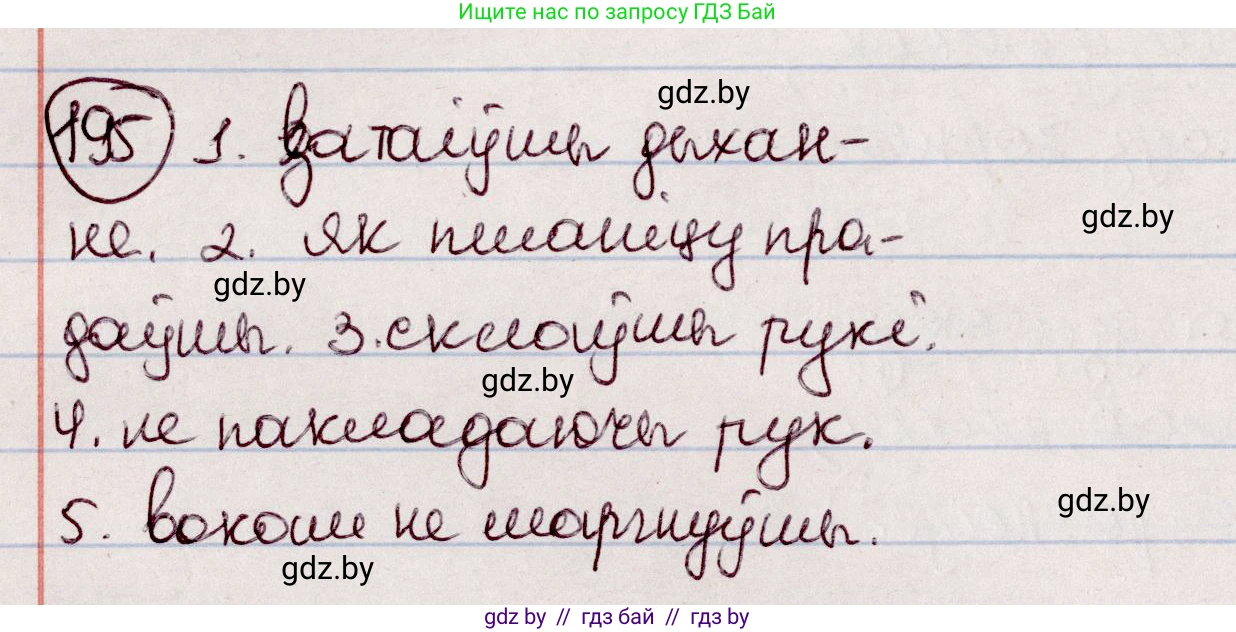 Ищите нас по запросу ГДЗ Бай
195 1. Затаіўшы дыхан-
gdz.by
не. 2. Як пшаніцу пра-
gdz.by
gdz.by
даўшы. 3. склаўшы рукі.
gdz.by
4. не пакладаючы рук.
5. вокам не маргнуўшы.
gdz.by
gdz.by
gdz by // гдз бай // гдз by